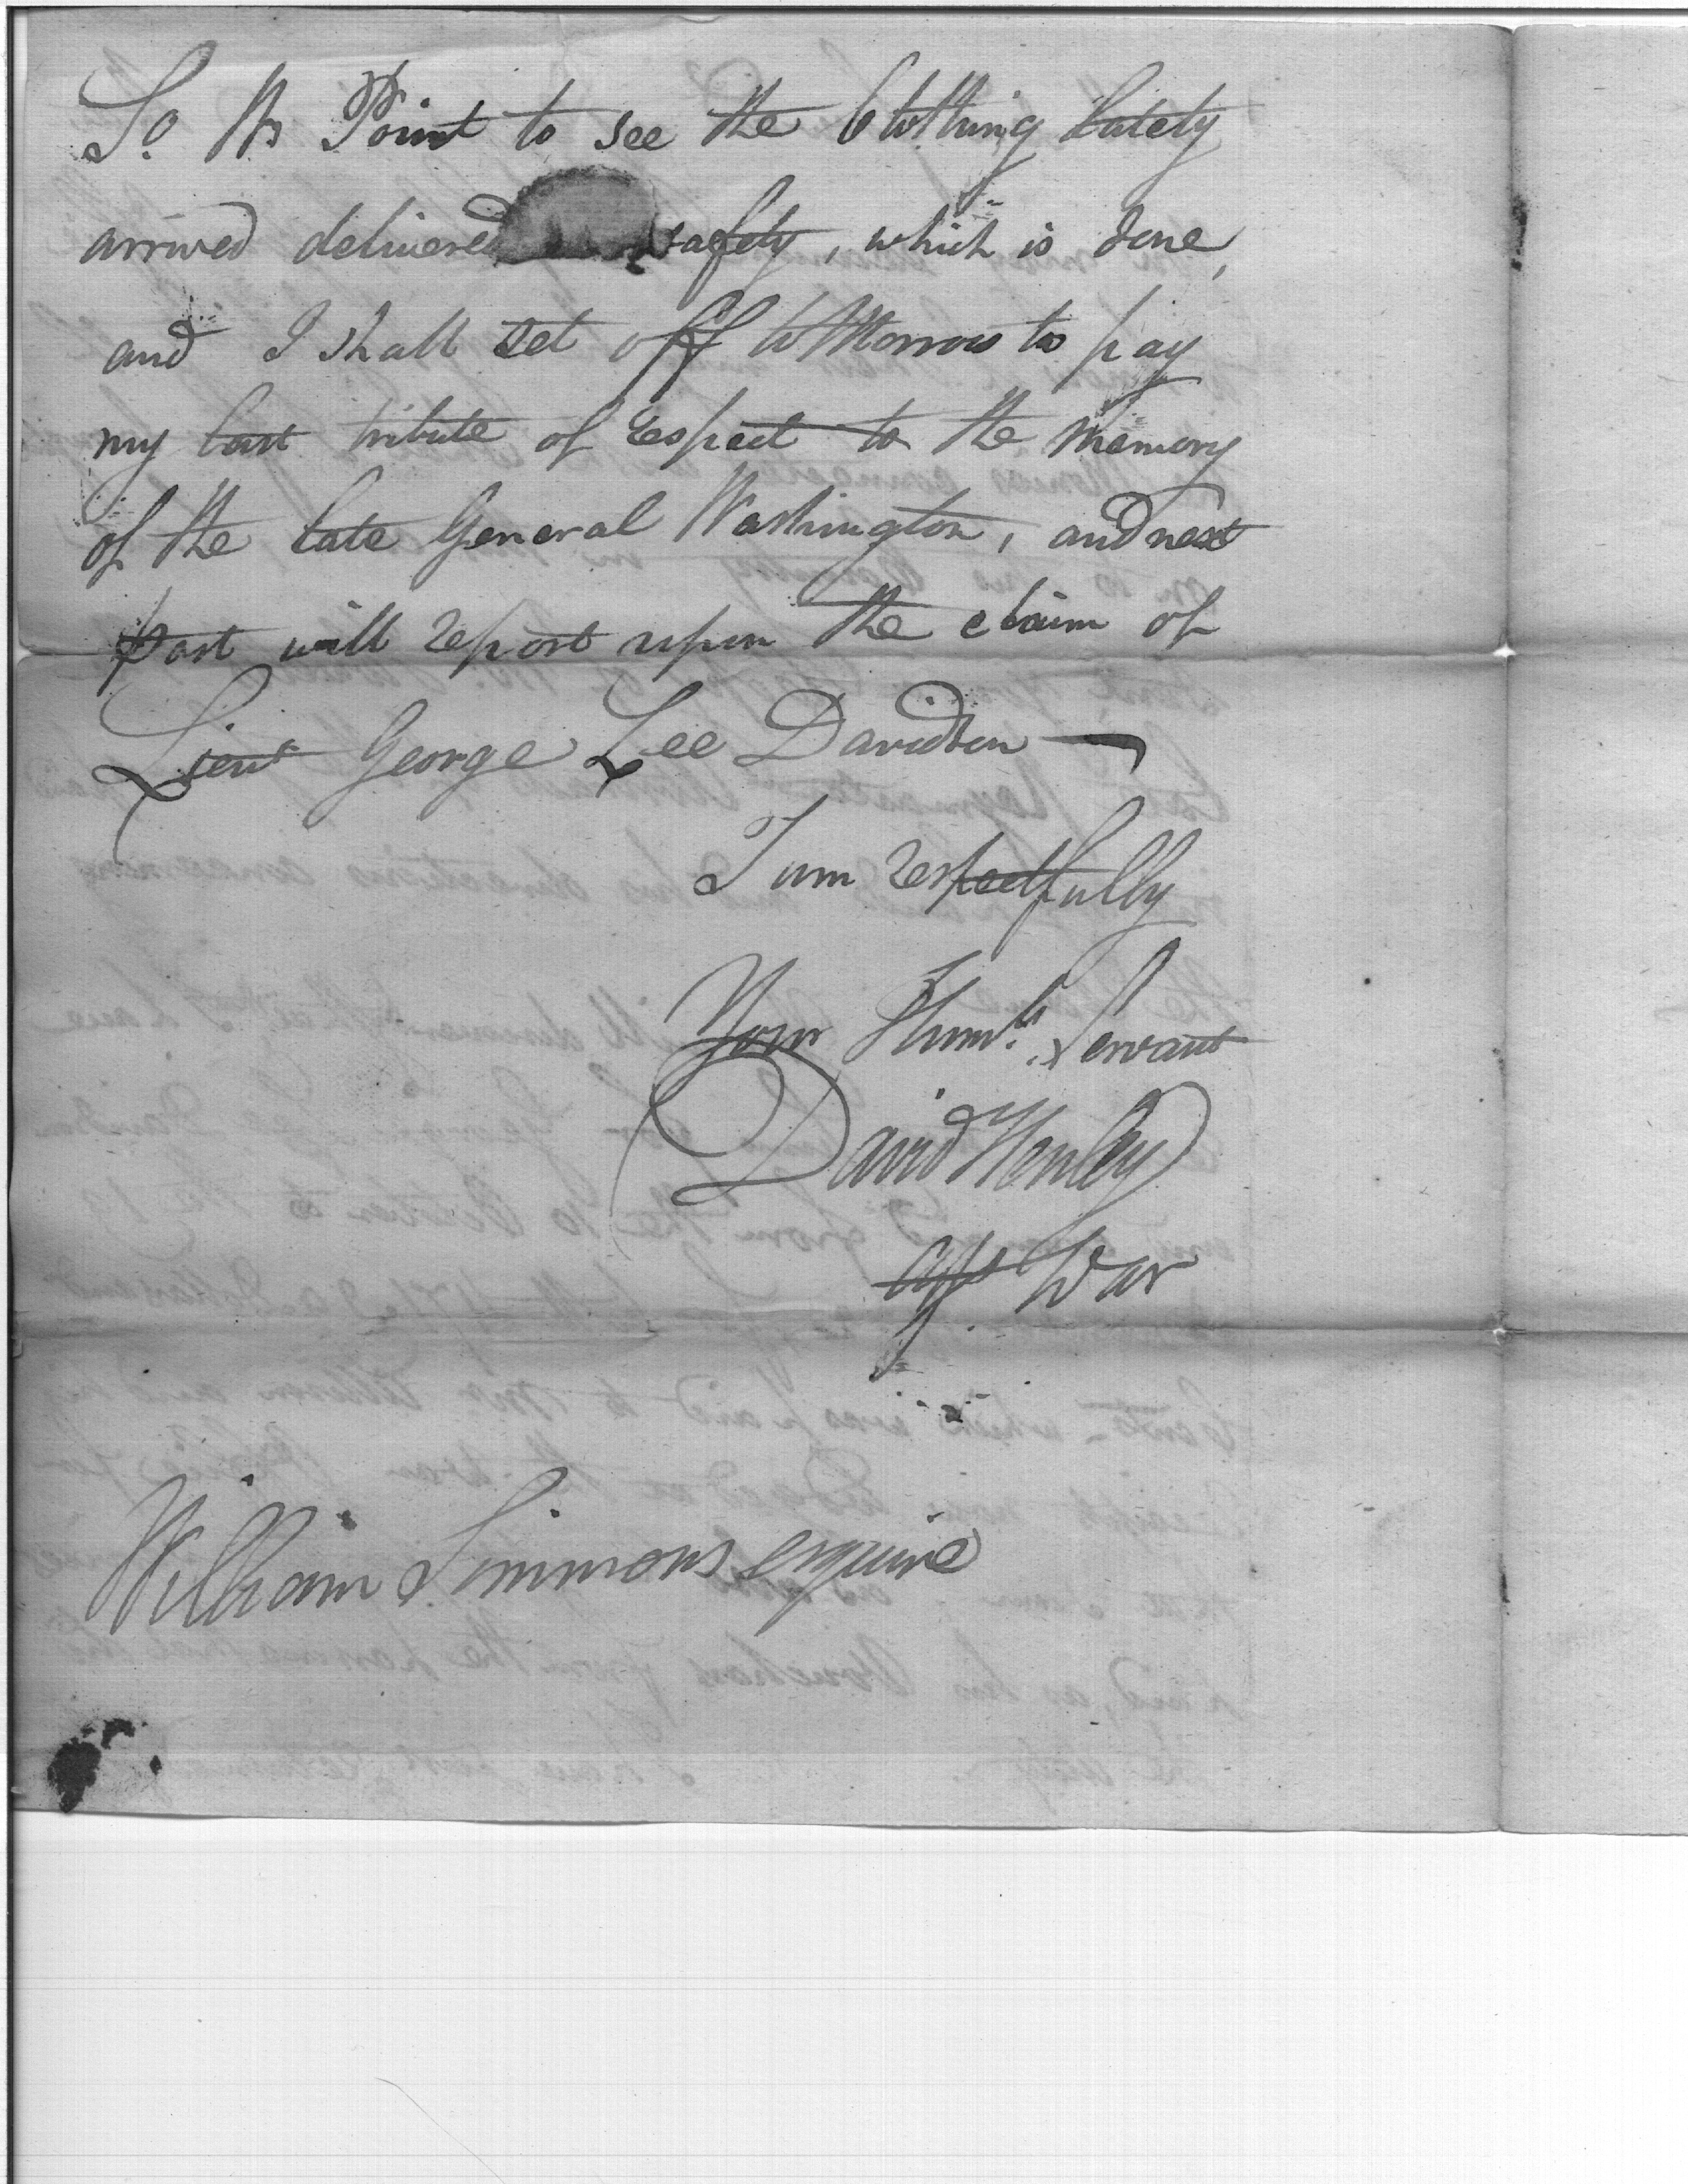 So. Ws Point to see the Clothing lately
arrived delivered safety, which is done,
and I shall set off toMorrow to pay
my last tribute of respect to the memory
of the late General Washington, and next
post will report upon the claim of
Lieut George Lee Davidson
I am respectfully
Your Humb. Servant
David Henley
Agt War
William Simmons esquire